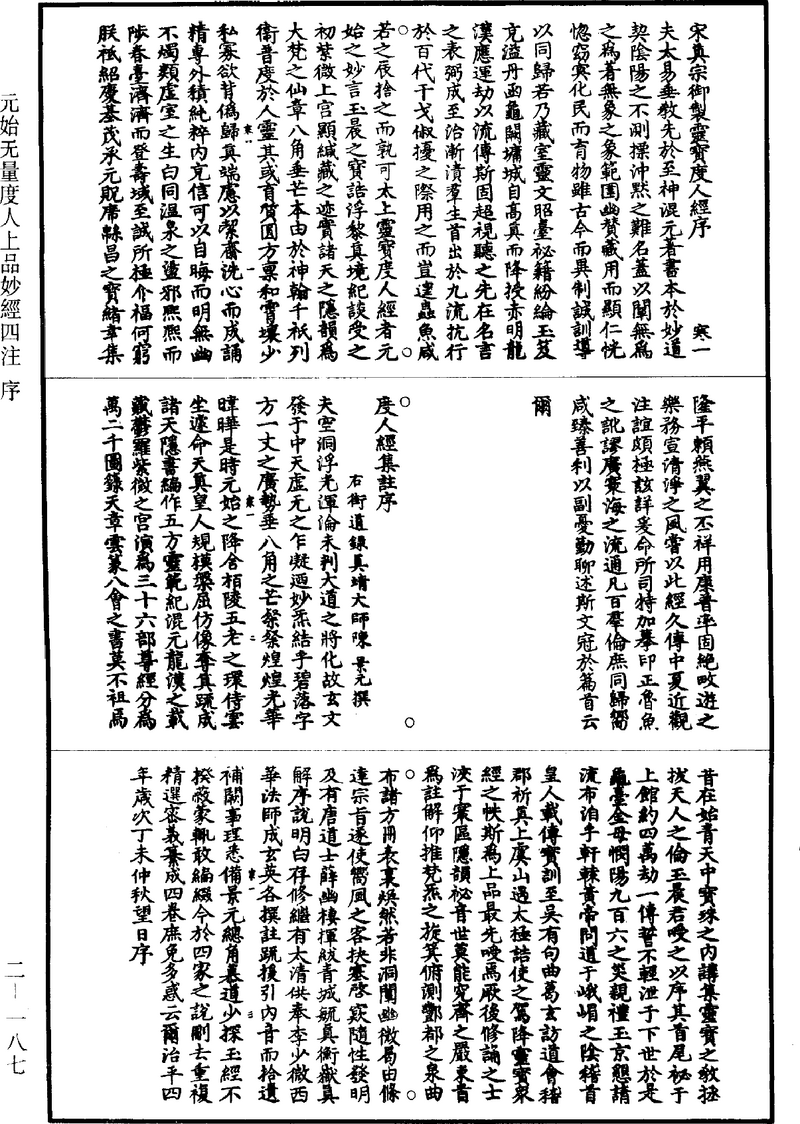 宋真宗御製靈寶度人經序　寒一
夫太易垂教先於至神混元著書本於妙道
契陰陽之不測操沖默之難名蓋以闡無為
之為著無象之象範圍幽贊藏用而顯仁恍
惚窈冥化民而育物雖古今而異制誠訓導
以同歸若乃藏室靈文昭臺祕籍紛綸玉笈
充溢丹函龜闕墉城自高真而降授赤明龍
漢應運劫以流傳斯固超視聽之先在名言
之表弼成至治漸漬羣生首出於九流抗行
於百代干戈俶擾之際用之而豈違蟲魚咸
若之辰捨之而孰可太上靈寶度人經者元
始之妙言玉晨之寶誥浮黎真境紀談受之
初紫微上宮顯緘藏之迹實諸天之隱韻為
大梵之仙章八角垂芒本由於神翰千祇列
衛普度於人靈其或育質圓方稟和霄壤少
私寡欲背偽歸真端慮以絜齋洗心而成誦
精專外積純粹內充信可以自晦而明無幽
不燭類虛室之生白同溫泉之盪邪熙熙而
陟春臺濟濟而登壽域至誠所極介福何窮
朕祇紹慶基茂承元貺席緜昌之寶緒幸集
隆平賴燕翼之丕祥用康普率固絕畋遊之
樂務宣清淨之風嘗以此經久傳中夏近觀
注誼頗極該詳爰命所司特加摹印正魯魚
之訛謬廣寰海之流通凡百羣倫庶同歸嚮
咸臻善利以副憂勤聊述斯文冠於篇首云
爾
度人經集註序
右街道錄真靖大師陳景元撰
夫空洞浮光渾淪未判大道之將化故玄文
發于中天虛无之乍凝廼妙炁結乎碧落字
方一丈之廣勢垂八角之芒粲粲煌煌光華
暐曄是時元始之降舍栢陵五老之環侍雲
坐遽命天真皇人規模槃屈仿像奪真疏成
諸天隱書編作五方靈範紀混元龍漢之載
藏鬱羅紫微之宮演為三十六部尊經分為
萬二千圖錄天章雲篆八會之書莫不祖焉
昔在始青天中寶珠之內講集靈寶之教拯
拔天人之倫玉晨君唆之以序其首尾祕于
上館約四萬劫一傳誓不輕泄于下世於是
龜臺金母憫陽九百六之災親禮玉京懇請
流布洎乎軒轅黃帝問道于峨嵋之陰稽首
皇人載傳寶訓至吳有句曲葛玄訪道會稽
郡祈真上虞山遇太極詰使之駕降靈寶衆
經之帙斯為上品最先唆焉厥後修誦之士
浹于寰區隱韻祕音世莫能究齊之嚴東首
為註解仰推梵炁之旋箕俯測酆都之泉曲
布諸方冊表裏煥然若非洞闡幽微曷由條
達宗旨遂使嚮風之客抉塞啓窾隨性發明
及有唐道士薛幽棲揮紱青城毓真衡嶽真
解序說明白存修繼有太清供奉李少微西
華法師成玄英各撰註疏援引內音而拾遺
補闕事理悉備景元總角慕道少探玉經不
揆蔽蒙輒敢編綴今於四家之說刪去重複
精選密義纂成四卷庶免多惑云爾治平四
年歲次丁未仲秋望日序
元始无量度人上品妙經四注　序
二—一八七